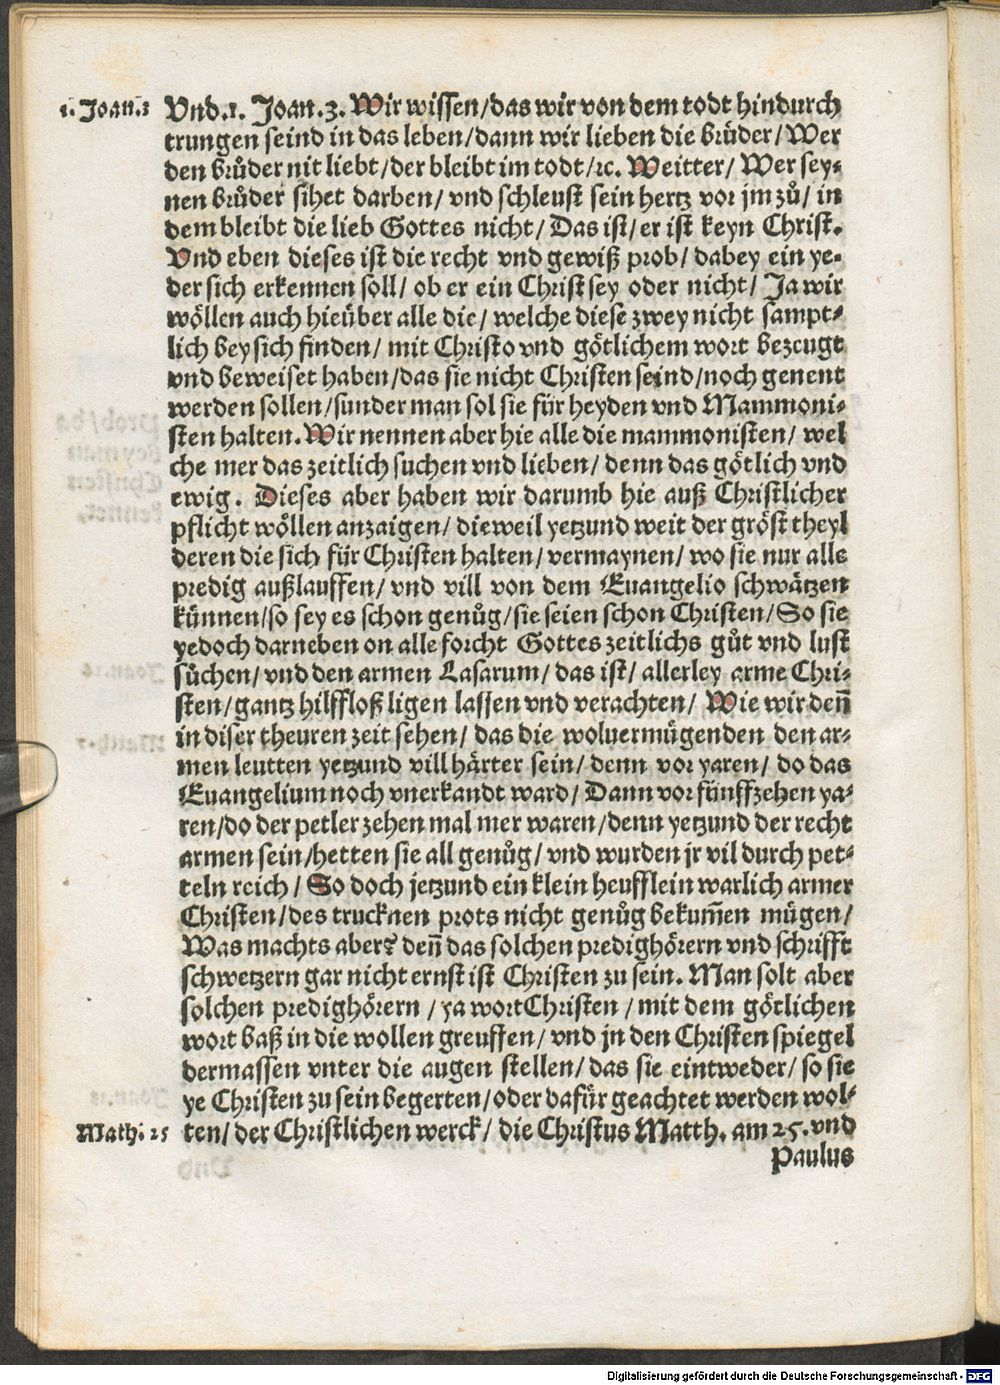 1. Joan. 3
Vnd .1. Joan. 3. Wir wissen/das wir von dem todt hindurch
trungen seind in das leben/dann wir lieben die brůder/Wer
den brůder nit liebt/der bleibt im todt/ꝛc. Weitter/ Wer sey-
nen brůder sihet darben/ vnd schleust sein hertz vor jm zů/ in
dem bleibt die lieb Gottes nicht/ Das ist/ er ist keyn Christ.
Vnd eben dieses ist die recht vnd gewiß prob/ dabey ein ye-
der sich erkennen soll/ ob er ein Christ sey oder nicht/ Ja wir
wöllen auch hieüber alle die/ welche diese zwey nicht sampt-
lich bey sich finden/ mit Christo vnd götlichem wort bezeugt
vnd beweiset haben/das sie nicht Christen seind/noch genent
werden sollen/sunder man sol sie für heyden vnd Mammoni-
sten halten. Wir nennen aber hie alle die mammonisten/ wel
che mer das zeitlich suchen vnd lieben/ denn das götlich vnd
ewig. Dieses aber haben wir darumb hie auß Christlicher
pflicht wöllen anzaigen/ dieweil yetzund weit der gröst theyl
deren die sich für Christen halten/ vermaynen/ wo sie nur alle
predig außlauffen/ vnd vill von dem Euangelio schwätzen
künnen/so sey es schon genůg/sie seien schon Christen/ So sie
yedoch darneben on alle forcht Gottes zeitlichs gůt vnd lust
sůchen/ vnd den armen Lasarum/ das ist/ allerley arme Chri-
sten/gantz hilffloß ligen lassen vnd verachten/ Wie wir deñ
in diser theuren zeit sehen/ das die woluermügenden den ar-
men leutten yetzund vill härter sein/ denn vor yaren/ do das
Euangelium noch vnerkandt ward/ Dann vor fünffzehen ya-
ren/do der petler zehen mal mer waren/denn yetzund der recht
armen sein/hetten sie all genůg/ vnd wurden jr vil durch pet-
teln reich/ So doch jetzund ein klein heufflein warlich armer
Christen/des trucknen prots nicht genůg bekum̃en mügen/
Was machts aber? deñ das solchen predighörern vnd schrifft
schwetzern gar nicht ernst ist Christen zu sein. Man solt aber
solchen predighörern/ ya wortChristen/ mit dem götlichen
wort baß in die wollen greuffen/ vnd jn den Christen spiegel
dermassen vnter die augen stellen/ das sie eintweder/ so sie
ye Christen zu sein begerten/oder dafür geachtet werden wol-
Math: 25
ten/ der Christlichen werck/ die Christus Matth. am 25. vnd
Paulus
Digitalisierung gefördert durch die Deutsche Forschungsgemeinschaft - DFG